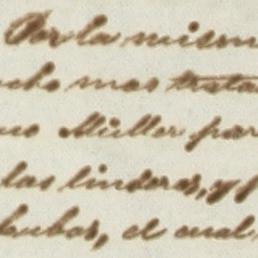 Por la mism
cho mas trata
no Müller par
las linderos, y p
bubas, el cual